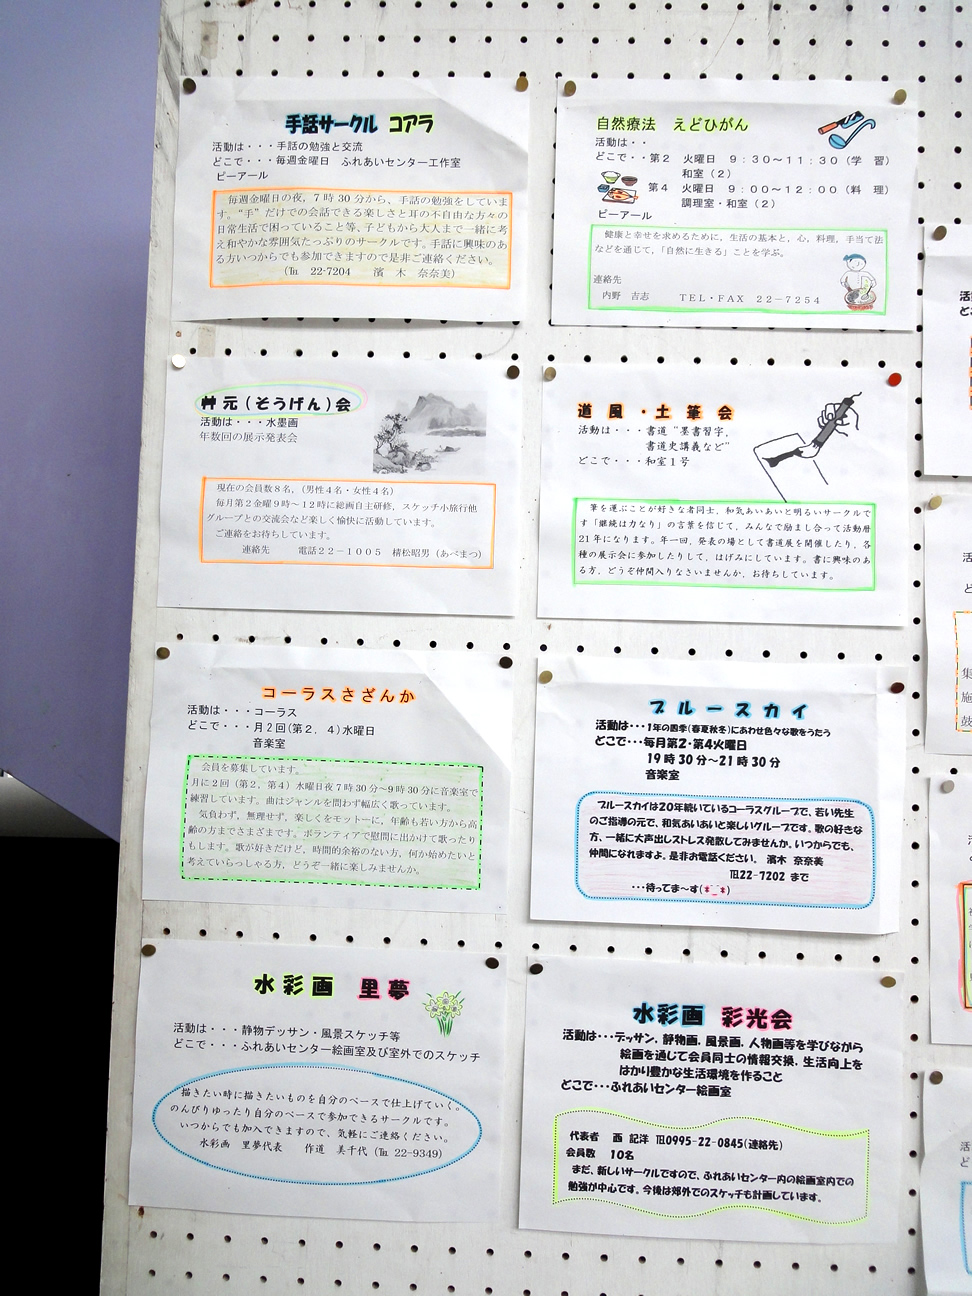 手話サークル コアラ
活動は・・・手話の勉強と交流
どこで・・・毎週金曜日 ふれあいセンター工作室
ピーアール
毎週金曜日の夜，7時30分から、手話の勉強をしていま
す。“手”だけでの会話できる楽しさと耳の不自由な方々の
日常生活で困っていること等、子どもから大人まで一緒に考
え和やかな雰囲気たっぷりのサークルです。手話に興味のあ
る方いつからでも参加できますので是非ご連絡ください。
（℡ 22-7204 濱 木 奈奈美）
自然療法 えどひがん
活動は・・
どこで・・第２ 火曜日 ９：３０～１１：３０（学 習）
和室（２）
第４ 火曜日 ９：００～１２：００（料 理）
調理室・和室（２）
ピーアール
健康と幸せを求めるために，生活の基本と，心，料理，手当て法
などを通じて，「自然に生きる」ことを学ぶ。
連絡先
内野 吉志 ＴＥＬ・ＦＡＸ ２２－７２５４
艸元（そうげん）会
活動は・・・水墨画
年数回の展示発表会
現在の会員数８名，（男性４名・女性４名）
毎月第２金曜９時～１２時に絵画自主研修，スケッチ小旅行他
グループとの交流会など楽しく愉快に活動しています。
ご連絡をお待ちしています。
連絡先 電話２２－１００５ 棈松昭男（あべまつ）
道風・土筆会
活動は・・・書道 “墨書習字，
書道史講義など”
どこで・・・和室１号
筆を運ぶことが好きな者同士，和気あいあいと明るいサークルで
す「継続は力なり」の言葉を信じて，みんなで励まし合って活動暦
21年になります。年一回，発表の場として書道展を開催したり，各
種の展示会に参加したりして，はげみにしています。書に興味のあ
る方，どうぞ仲間入りなさいませんか，お待ちしています。
コーラスさざんか
活動は・・・コーラス
どこで・・・月２回(第２，４)水曜日
音楽室
会員を募集しています。
月に２回（第２，第４）水曜日夜７時30分～９時30分に音楽室で
練習しています。曲はジャンルを問わず幅広く歌っています。
気負わず，無理せず，楽しくをモットーに，年齢も若い方から高
齢の方までさまざまです。ボランティアで慰問に出かけて歌ったり
もします。歌が好きだけど，時間的余裕のない方，何か始めたいと
考えていらっしゃる方，どうぞ一緒に楽しみませんか。
ブルースカイ
活動は・・・1年の四季(春夏秋冬)にあわせ色々な歌をうたう
どこで・・・毎月第2・第4火曜日
19時30分～21時30分
音楽室
ブルースカイは20年続いているコーラスグループで、若い先生
のご指導の元で、和気あいあいと楽しいグループです。歌の好きな
方、一緒に大声出しストレス発散してみませんか。いつからでも、
仲間になれますよ。是非お電話ください。 濱木 奈奈美
℡22-7202 まで
・・・待ってま～す(*^_^*)
水彩画 里夢
活動は・・・静物デッサン・風景スケッチ等
どこで・・・ふれあいセンター絵画室及び室外でのスケッチ
描きたい時に描きたいものを自分のペースで仕上げていく。
のんびりゆったり自分のペースで参加できるサークルです。
いつからでも加入できますので、気軽にご連絡ください。
水彩画 里夢代表 作道 美千代（℡ 22-9349）
水彩画 彩光会
活動は・・・デッサン，静物画，風景画，人物画等を学びながら
絵画を通じて会員同士の情報交換，生活向上を
はかり豊かな生活環境を作ること
どこで・・・ふれあいセンター絵画室
代表者 西 記洋 ℡0995-22-0845(連絡先)
会員数 10名
まだ，新しいサークルですので，ふれあいセンター内の絵画室内での
勉強が中心です。今後は郊外でのスケッチも計画しています。